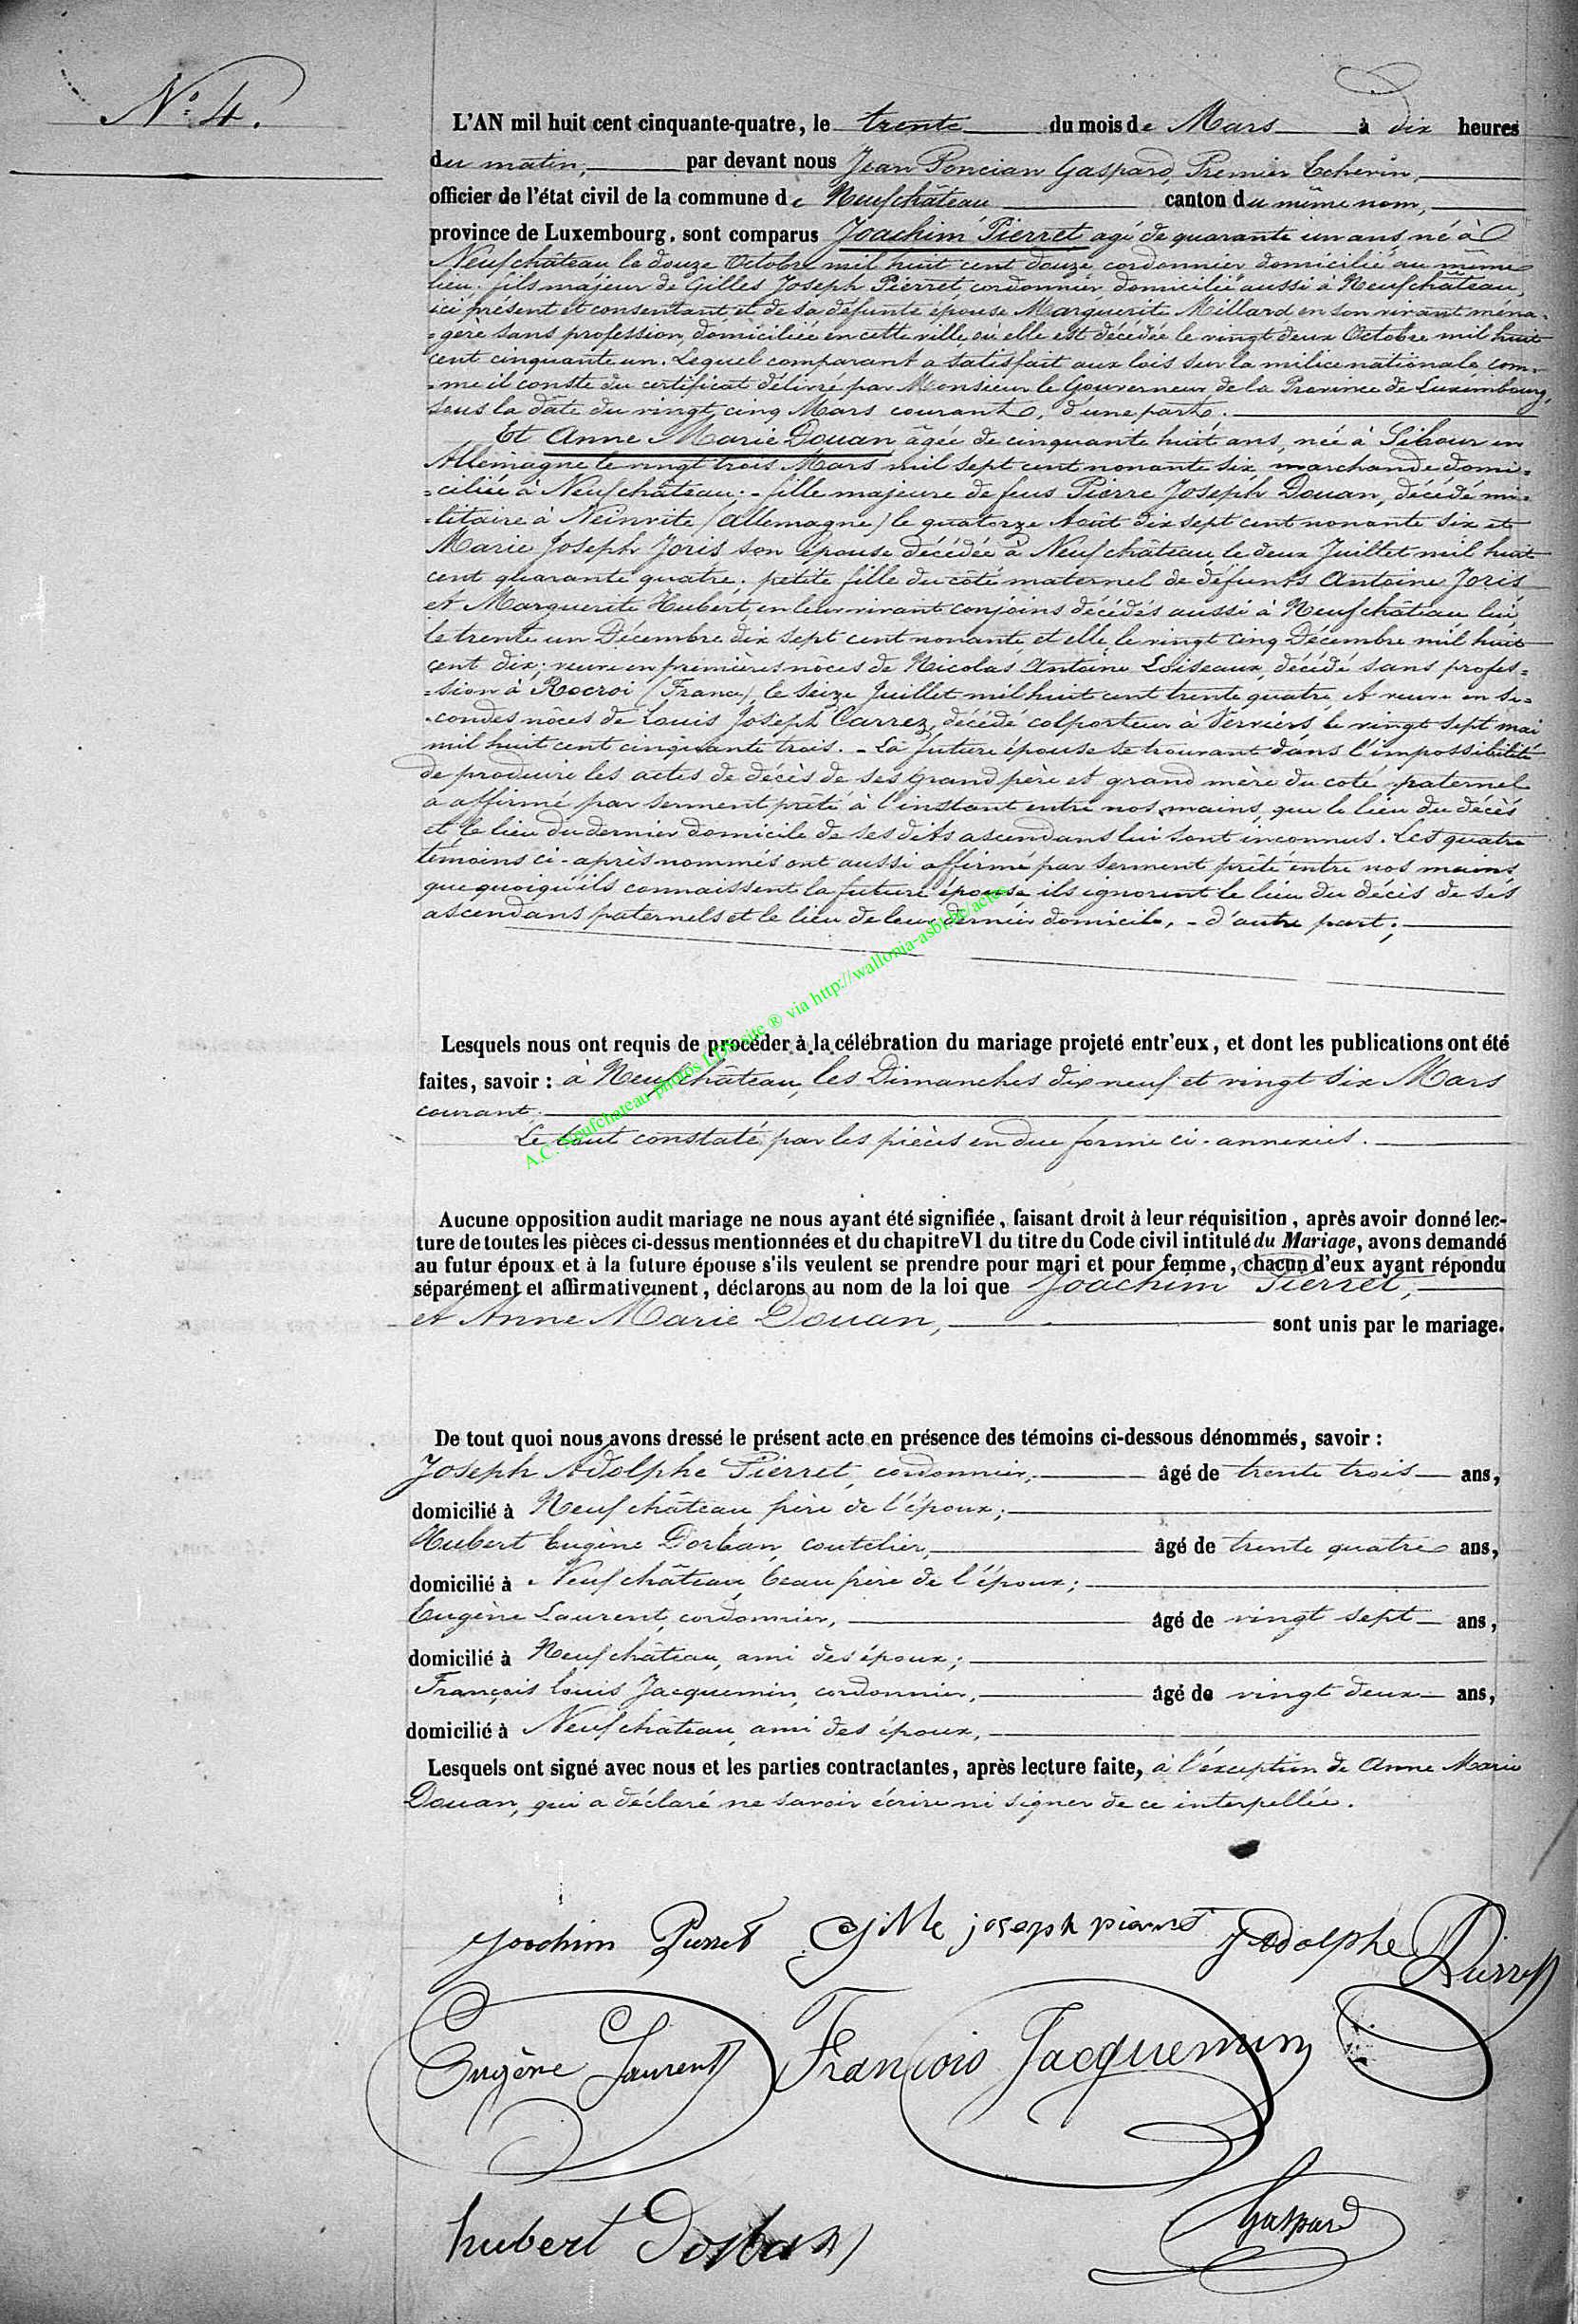 N° 4.
L'AN mil huit cent cinquante-quatre, le trente du mois de Mars à dix heures
du matin, par devant nous Jean Poncian Gaspard, Premier Echevin,
officier de l'état civil de la commune de Neufchâteau canton du même nom,
province de Luxembourg, sont comparus Joachim Pierret agé de quarante un ans, né à
Neufchâteau le douze Octobre mil huit cent douze, cordonnier domicilié au même
lieu. fils majeur de Gilles Joseph Pierret, cordonnier, domicilié aussi à Neufchâteau,
ici présent et consentant et de sa défunte épouse Marguerite Millard en son vivant ména-
=gère sans profession, domiciliée en cette ville, où elle est décédée le vingt deux Octobre mil huit
cent cinquante un. Lequel comparant a satisfait aux lois sur la milice nationale, com-
=me il conste du certificat délivré par Monsieur le Gouverneur de la Province de Luxembourg,
sous la date du vingt cinq Mars courant, d'une part.
Et Anne Marie Douan âgée de cinquante huit ans, née à Sibour en
Allemagne le vingt trois Mars mil sept cent nonante six marchande domi=
=ciliée à Neufchâteau; - fille majeure de feus Pierre Joseph Douan, décédé mi=
=litaire à Neinvite (Allemagne) le quatorze Août dix sept cent nonante six et
Marie Joseph Joris son épouse décédée à Neufchâteau, le deux Juillet mil huit
cent quarante quatre. petite fille du côté maternel de défunts Antoine Joris
et Marguerite Hubert, en leur vivant conjoins décédés aussi à Neufchâteau, lui,
le trente un Décembre dix sept cent nonante, et elle, le vingt cinq Décembre mil huit
cent dix; veuve en premières nôces de Nicolas Antoine Loiseaux, décédé sans profes=
=sion à Rocroi (France), le seize Juillet mil huit cent trente quatre, et veuve en se=
=condes nôces de Louis Joseph Carrez, décédé colporteur à Verviers le vingt sept mai
mil huit cent cinquante trois. - La future épouse se trouvant dans l'impossibilité
de produire les actes de décès de ses grand père et grand mère du coté paternel
a affirmé par serment prêté à l'instant entre nos mains, que le lieu du décès
et le lieu du dernier domicile de ses dits ascendans lui sont inconnus. Les quatre
témoins ci-après nommés ont aussi affirmé par serment prêté entre nos mains
que quoiqu'ils connaissent la future épouse, ils ignorent le lieu du décès de ses
ascendans paternels et le lieu de leur dernier domicile, - d'autre part;
Lesquels nous ont requis de procéder à la célébration du mariage projeté entr'eux, et dont les publications ont été
faites, savoir : à Neufchâteau, les Dimanches dix neuf et vingt six Mars
courant.
Le tout constaté par les pièces en due forme ci-annexées.
A.C. Neufchateau photos LDS site ® via http://wallonia-asbl.be/actes
Aucune opposition audit mariage ne nous ayant été signifiée, faisant droit à leur réquisition, après avoir donné lec-
ture de toutes les pièces ci-dessus mentionnées et du chapitre VI du titre du Code civil intitulé du Mariage, avons demandé
au futur époux et à la future épouse s'ils veulent se prendre pour mari et pour femme, chacun d'eux ayant répondu
séparément et affirmativement, déclarons au nom de la loi que Joachim Pierret,
et Anne Marie Douan, sont unis par le mariage.
De tout quoi nous avons dressé le présent acte en présence des témoins ci-dessous dénommés, savoir :
Joseph Adolphe Pierret, cordonnier, âgé de trente trois ans,
domicilié à Neufchâteau, frère de l'époux;
Hubert Eugène Dorban, coutelier, âgé de trente quatre ans,
domicilié à Neufchâteau, beau frère de l'époux;
Eugène Laurent, cordonnier, âgé de vingt sept ans,
domicilié à Neufchâteau, ami des époux;
François Louis Jacquemin, cordonnier, âgé de vingt deux ans,
domicilié à Neufchâteau, ami des époux,
Lesquels ont signé avec nous et les parties contractantes, après lecture faite, à l'exception de Anne Marie
Douan, qui a déclaré ne savoir écrire ni signer de ce interpellée.
Joachim Pierret Gille joseph pierret J Adolphe Pierret
Eugène Laurent François Jacquemin
hubert Dorban Gaspard